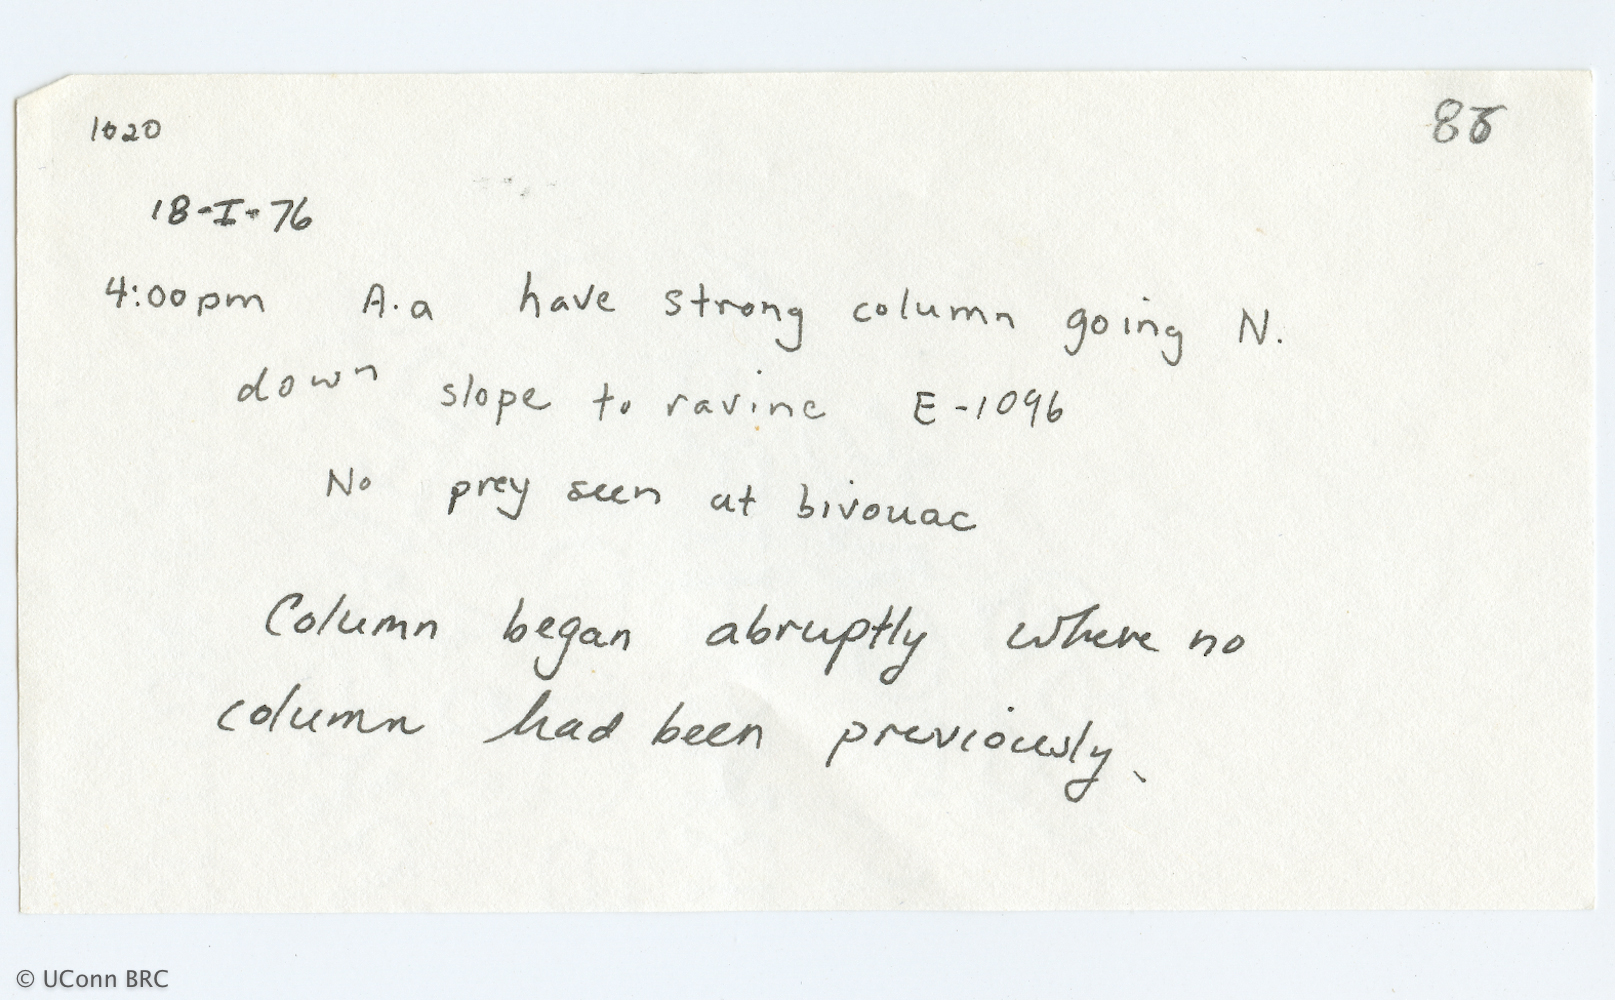 1020
88
18-I-76
4:00pm A.a have strong column going N.
down slope to ravine E-1096
No prey seen at bivouac
Column began abruptly where no
column had been previously.
© UConn BRC